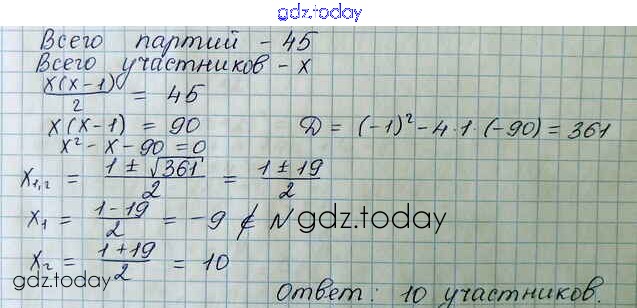 gdz.today
Всего партий - 45
Всего участников - x
x(x-1)/2 = 45
x(x-1) = 90
D = (-1)² - 4·1·(-90) = 361
x² - x - 90 = 0
x₁,₂ = (1 ± √361)/2 = (1 ± 19)/2
x₁ = (1-19)/2 = -9 ∉ N
gdz.today
x₂ = (1+19)/2 = 10
gdz.today
Ответ: 10 участников.